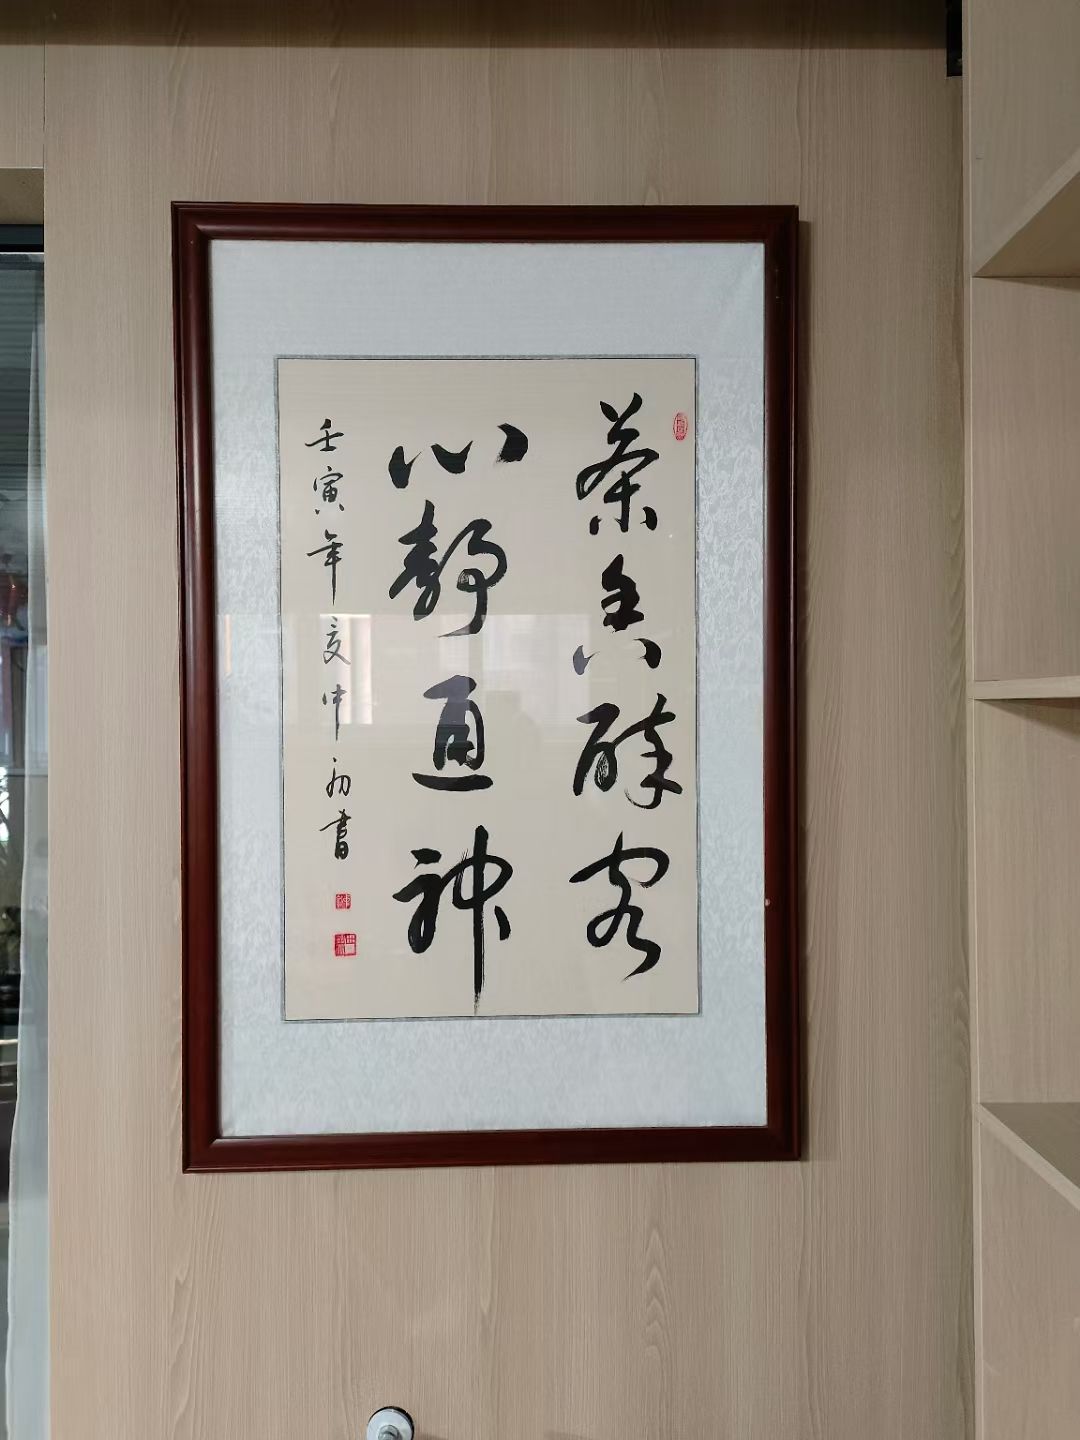 茶香醉客
心静通神
壬寅年夏中初書